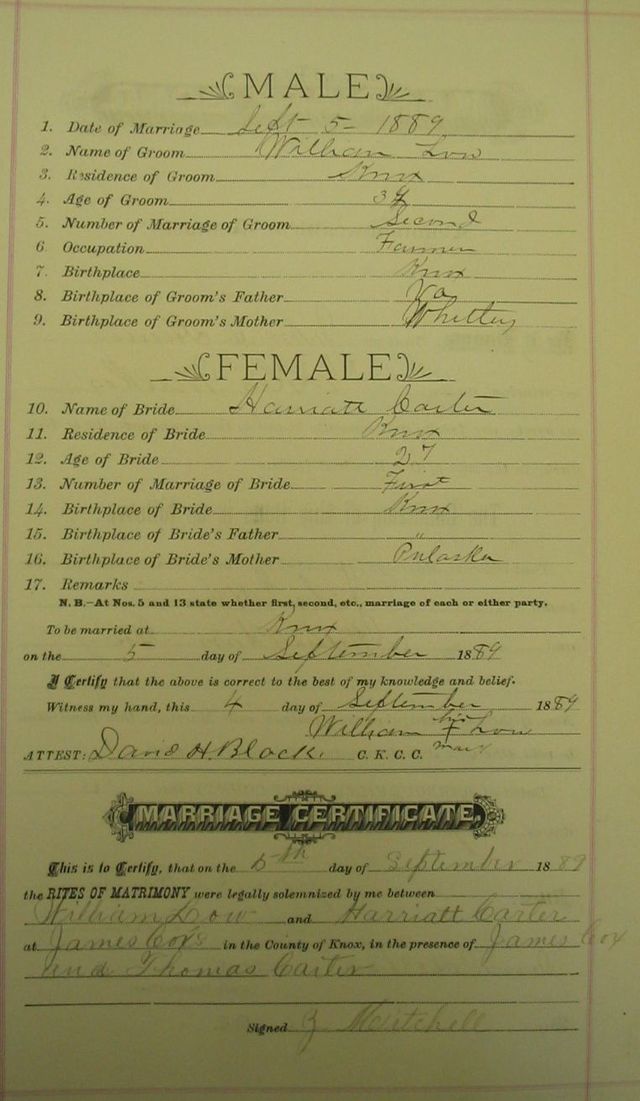 MALE
1. Date of Marriage Sept 5 - 1889
2. Name of Groom William Low
3. Residence of Groom Knox
4. Age of Groom
5. Number of Marriage of Groom Second
6 Occupation Farmer
7. Birthplace Knox
8. Birthplace of Groom's Father Va
9. Birthplace of Groom's Mother Whitley
FEMALE
10. Name of Bride Harriatt Carter
11. Residence of Bride Knox
12. Age of Bride 27
13. Number of Marriage of Bride First
14. Birthplace of Bride Knox
15. Birthplace of Bride's Father "
16. Birthplace of Bride's Mother Pulaska
17. Remarks
N. B.—At Nos. 5 and 13 state whether first, second, etc., marriage of each or either party.
To be married at Knox
on the 5 day of September 1889
I Certify that the above is correct to the best of my knowledge and belief.
Witness my hand, this 4 day of September 1889
William his x mark Low
ATTEST: David H. Black. C. K. C. C.
MARRIAGE CERTIFICATE.
This is to Certify, that on the 5th day of September 1889
the RITES OF MATRIMONY were legally solemnized by me between
William Low and Harriatt Carter
at James Cox's in the County of Knox, in the presence of James Cox
and Thomas Carter
Signed Mitchell